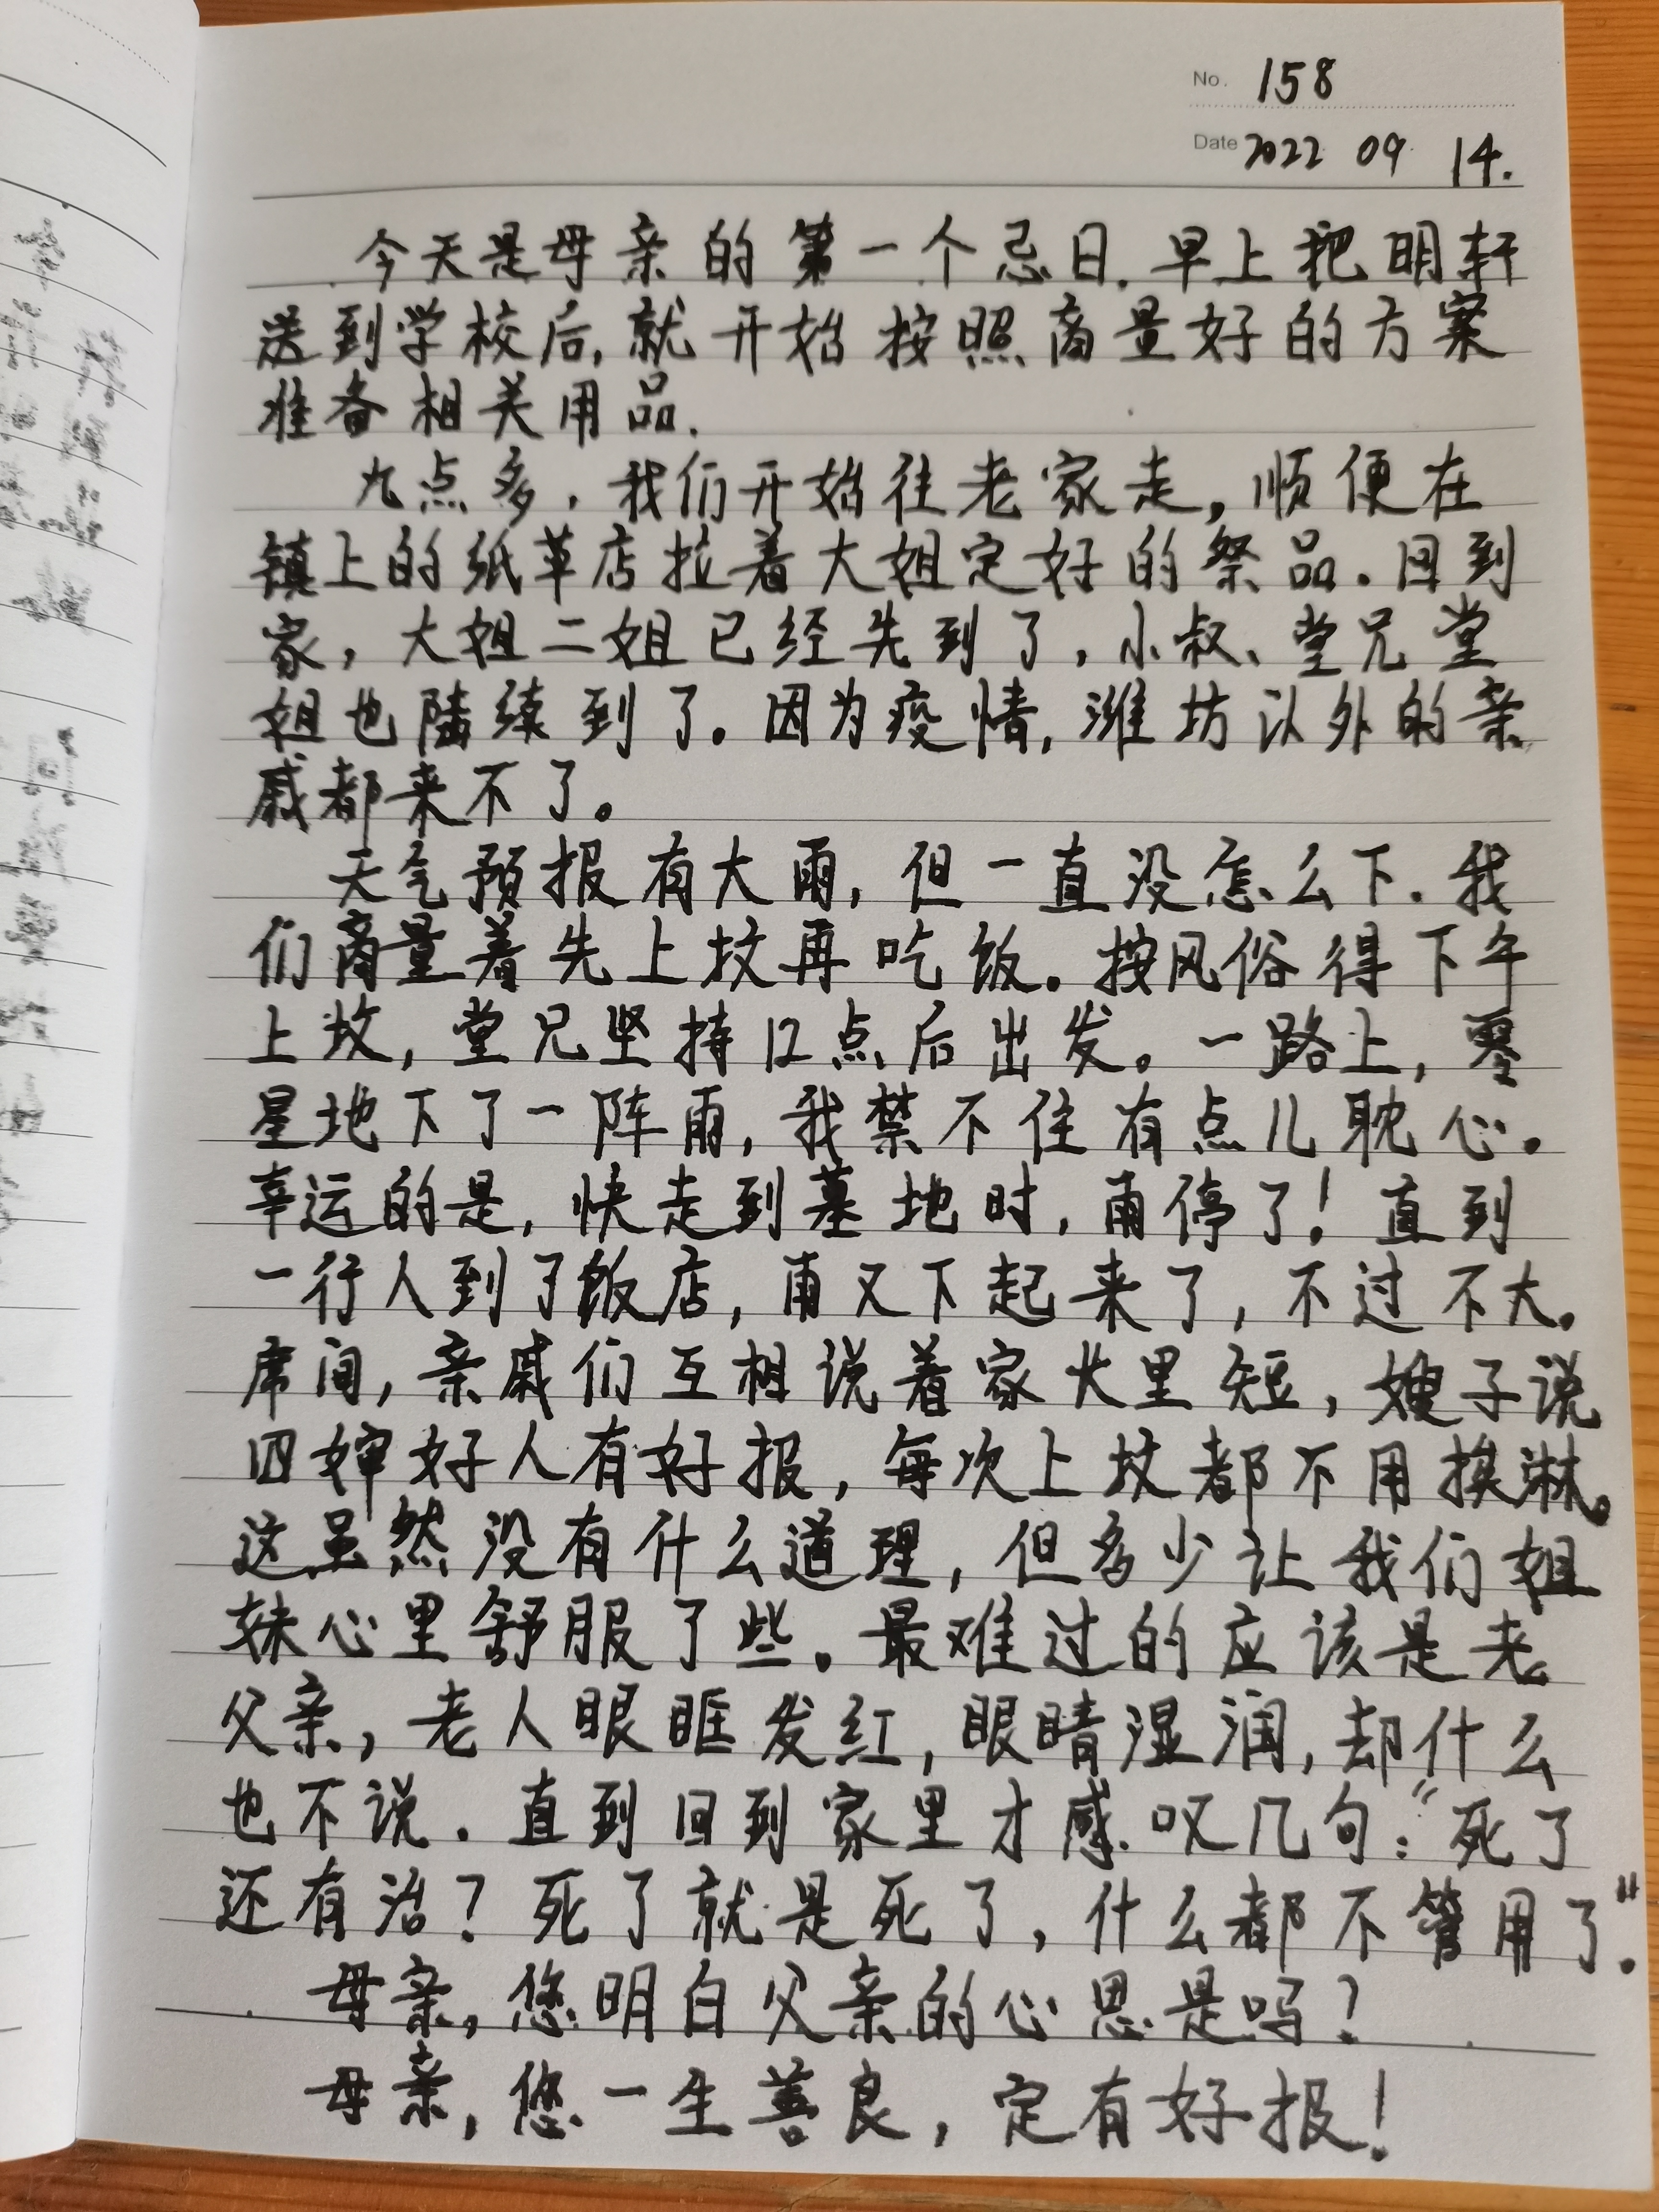 No. 158
Date 2022 09 14.
今天是母亲的第一个忌日.早上把明轩
送到学校后,就开始按照商量好的方案
准备相关用品.
九点多,我们开始往老家走,顺便在
镇上的纸草店拉着大姐定好的祭品.回到
家,大姐二姐已经先到了,小叔、堂兄堂
姐也陆续到了。因为疫情,潍坊以外的亲
戚都来不了。
天气预报有大雨,但一直没怎么下.我
们商量着先上坟再吃饭。按风俗得下午
上坟,堂兄坚持12点后出发。一路上,零
星地下了一阵雨,我禁不住有点儿耽心。
幸运的是,快走到墓地时,雨停了!直到
一行人到了饭店,雨又下起来了,不过不大。
席间,亲戚们互相说着家长里短,嫂子说
四婶好人有好报,每次上坟都不用挨淋。
这虽然没有什么道理,但多少让我们姐
妹心里舒服了些。最难过的应该是老
父亲,老人眼眶发红,眼睛湿润,却什么
也不说.直到回到家里才感叹几句:“死了
还有治?死了就是死了,什么都不管用了.”
母亲,您明白父亲的心思是吗?
母亲,您一生善良,定有好报!